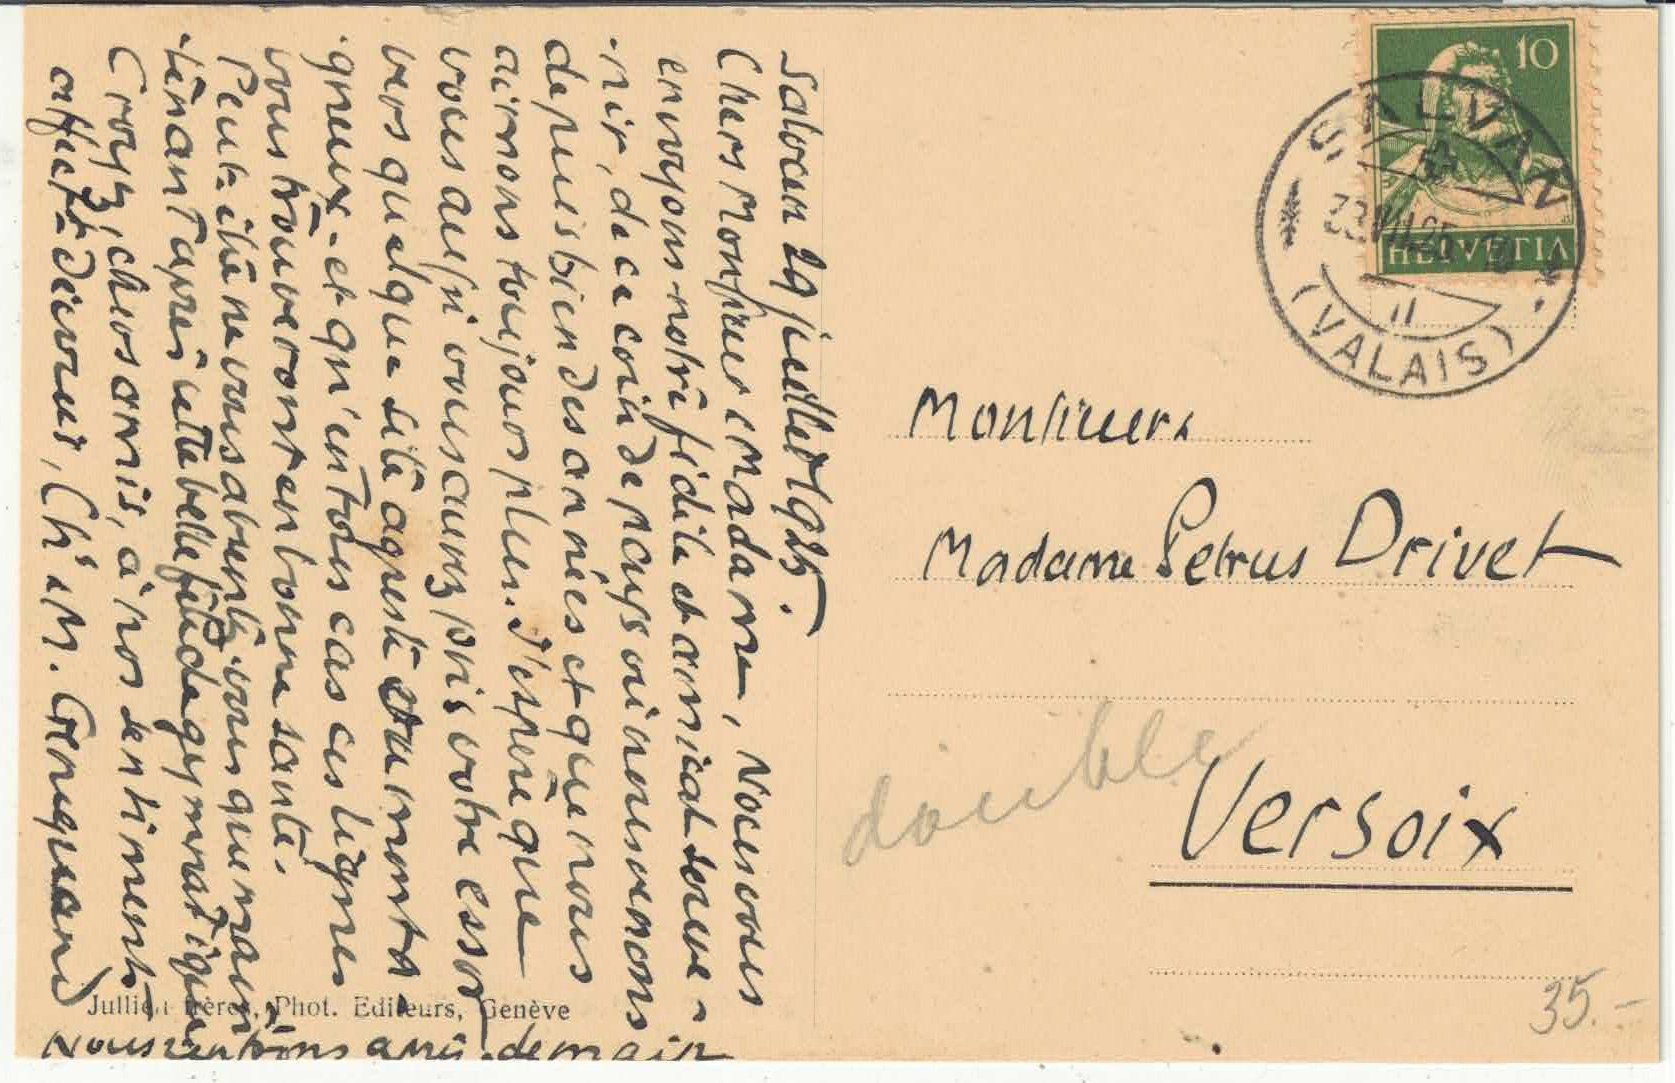 Salvan 29 juillet 1925.
Chers Monsieur et Madame, Nous vous
envoyons notre fidèle et amical souve-
nir, de ce coin de pays où nous venons
depuis bien des années et que nous
aimons toujours plus. J'espère que
vous aussi vous aurez pris votre essor
vers quelque site agreste ou monta
gneux - et qu'en tous cas ces lignes
vous trouveront en bonne santé.
Peut-être ne vous absentez-vous que main
tenant après cette belle fête de gymnastique
Croyez, chers amis, à nos sentiments
affect. dévoués, Ch. & M.
Nous rentrons après-demain
Jullien frères, Phot. Editeurs, Genève
10
HELVETIA
SALVAN
VII.25
(VALAIS)
Monsieur &
Madame Petrus Drivet
Versoix
double
35.-